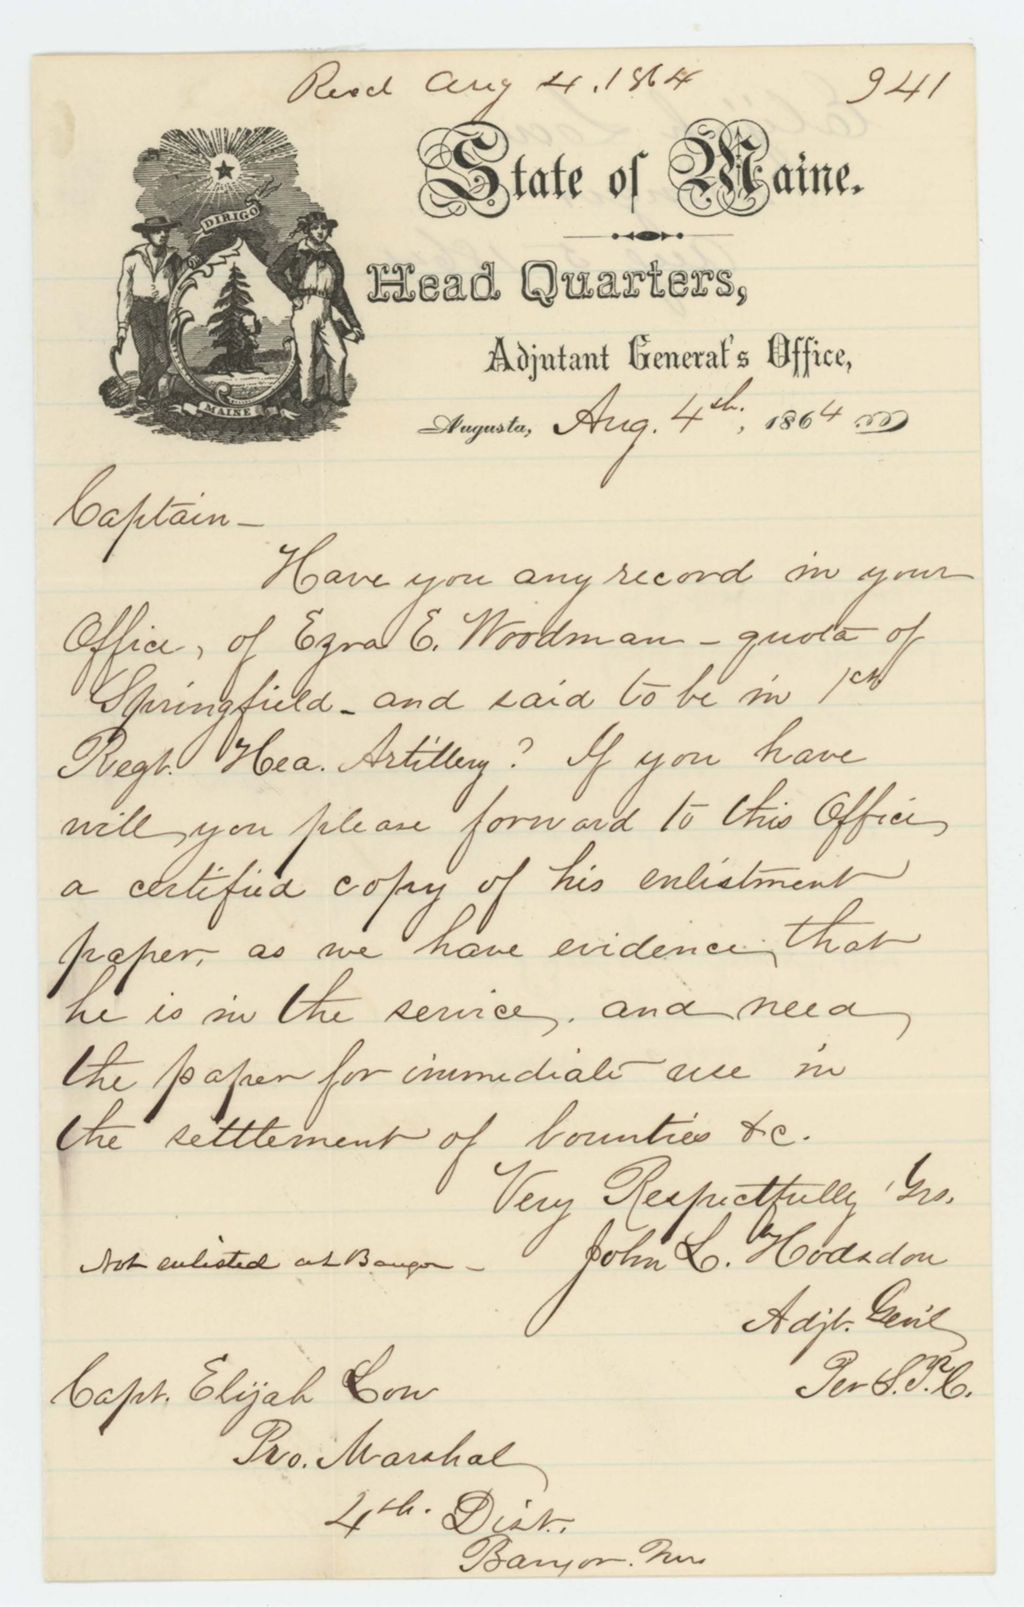 Recd Aug 4, 1864 941
State of Maine.
DIRIGO
Head Quarters,
MAINE
Adjutant General's Office,
Augusta, Aug. 4th, 1864
Captain—
Have you any record in your
Office, of Ezra E. Woodman – quota of
Springfield – and said to be in 1st
Regt. Hea. Artillery? If you have
will you please forward to this Office
a certified copy of his enlistment
paper, as we have evidence that
he is in the service, and need
the paper for immediate use in
the settlement of bounties &c.
Very Respectfully Yrs.
John L. Hodsdon
Not enlisted at Bangor –
Adjt. Genl
Per
Capt. Elijah Low
Pro. Marshal
4th. Dist.
Bangor. Me